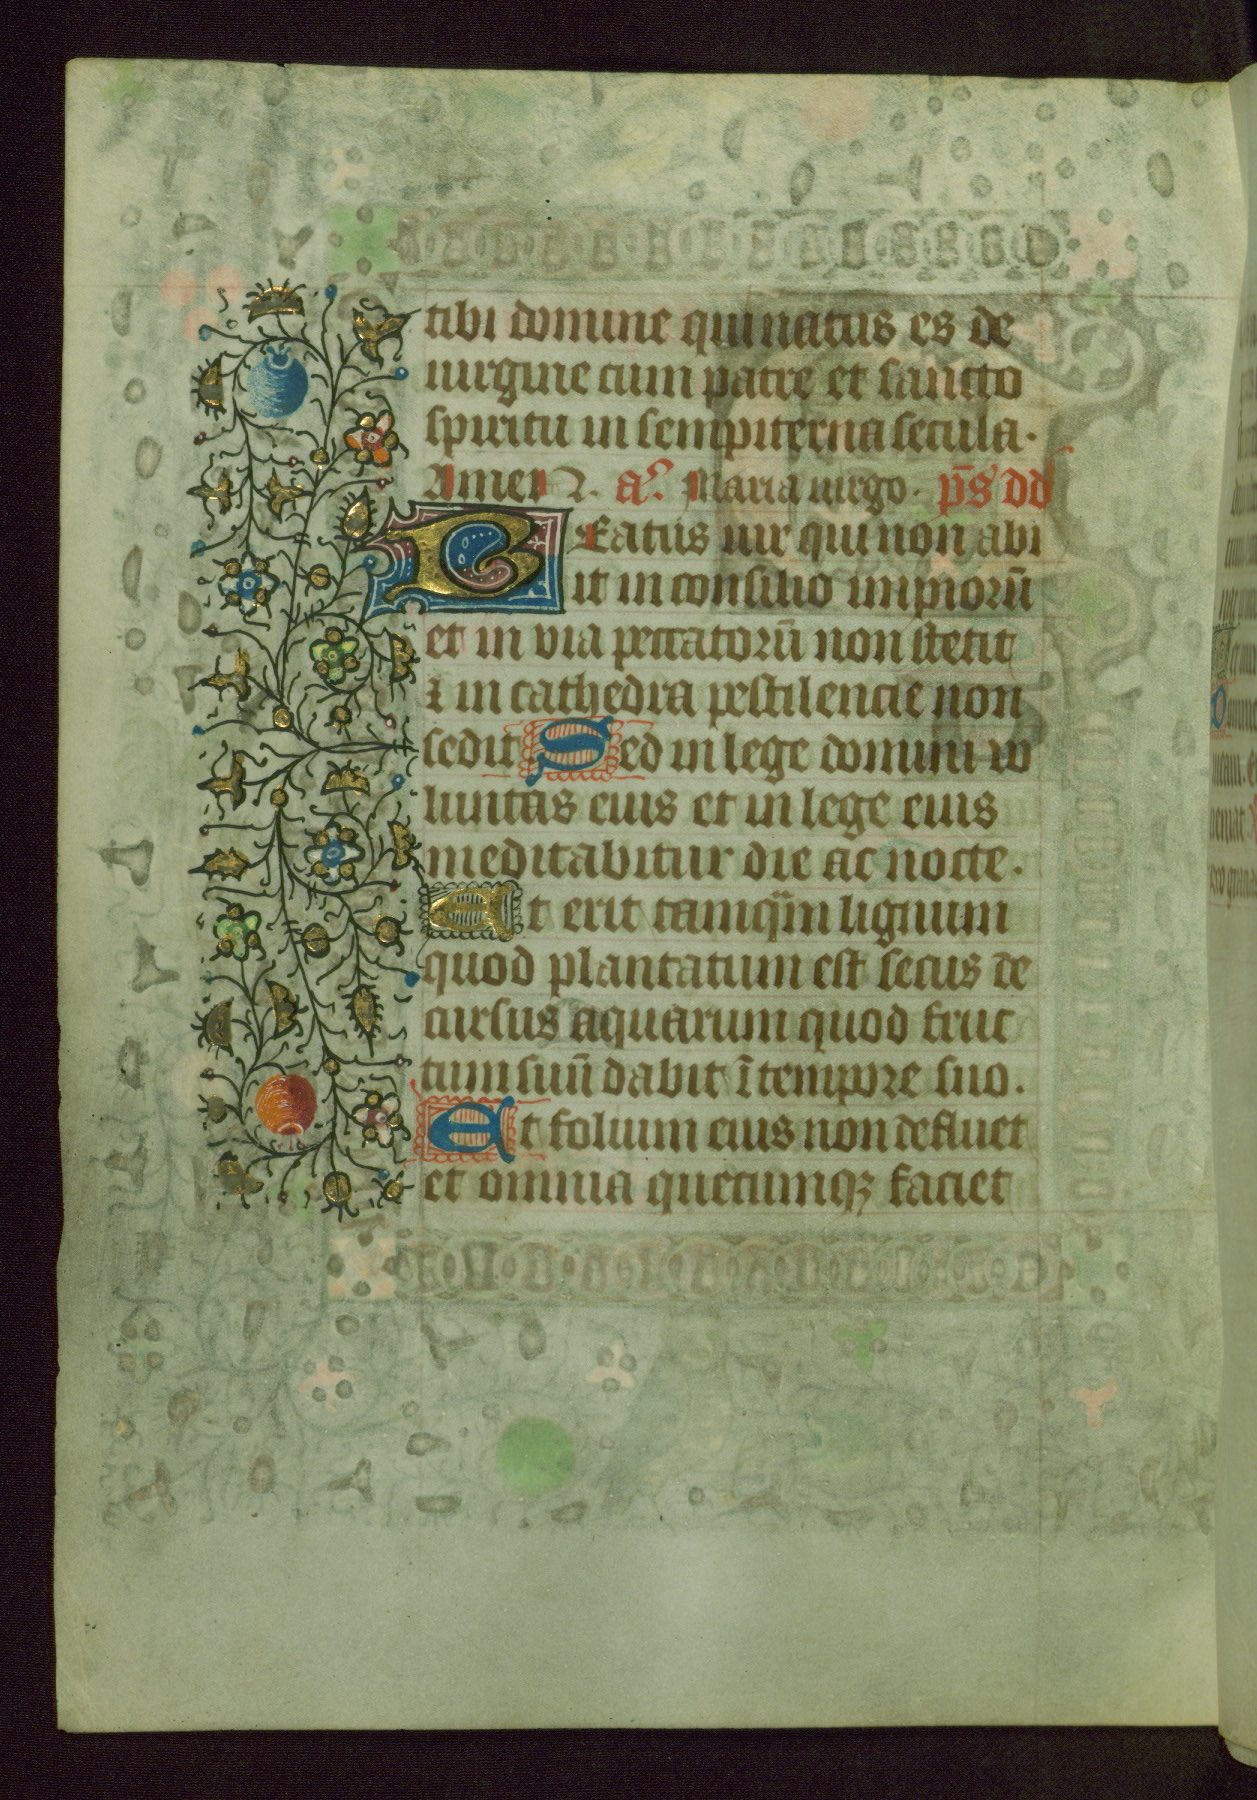 tibi domine qui natus es de
uirgine cum patre et sancto
spiritu in sempiterna secula.
Amen. a̅. Maria uirgo. p̅s dd
Beatus uir qui non abi
it in consilio impiorū
et in via peccatorū non stetit
⁊ in cathedra pestilencie non
sedit Sed in lege domini uo
luntas eius et in lege eius
meditabitur die ac nocte.
Et erit tamq̄m lignum
quod plantatum est secus de
cursus aquarum quod fruc
tum suū dabit ī tempore suo.
Et folium eius non defluet
et omnia quecumqꝫ faciet